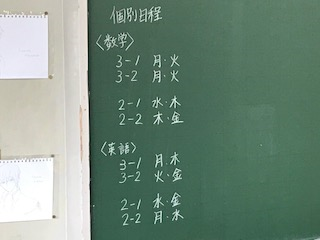 個別日程
〈数学〉
3-1 月・火
3-2 月・火
2-1 水・木
2-2 木・金
〈英語〉
3-1 月・木
3-2 火・金
2-1 水・金
2-2 月・水